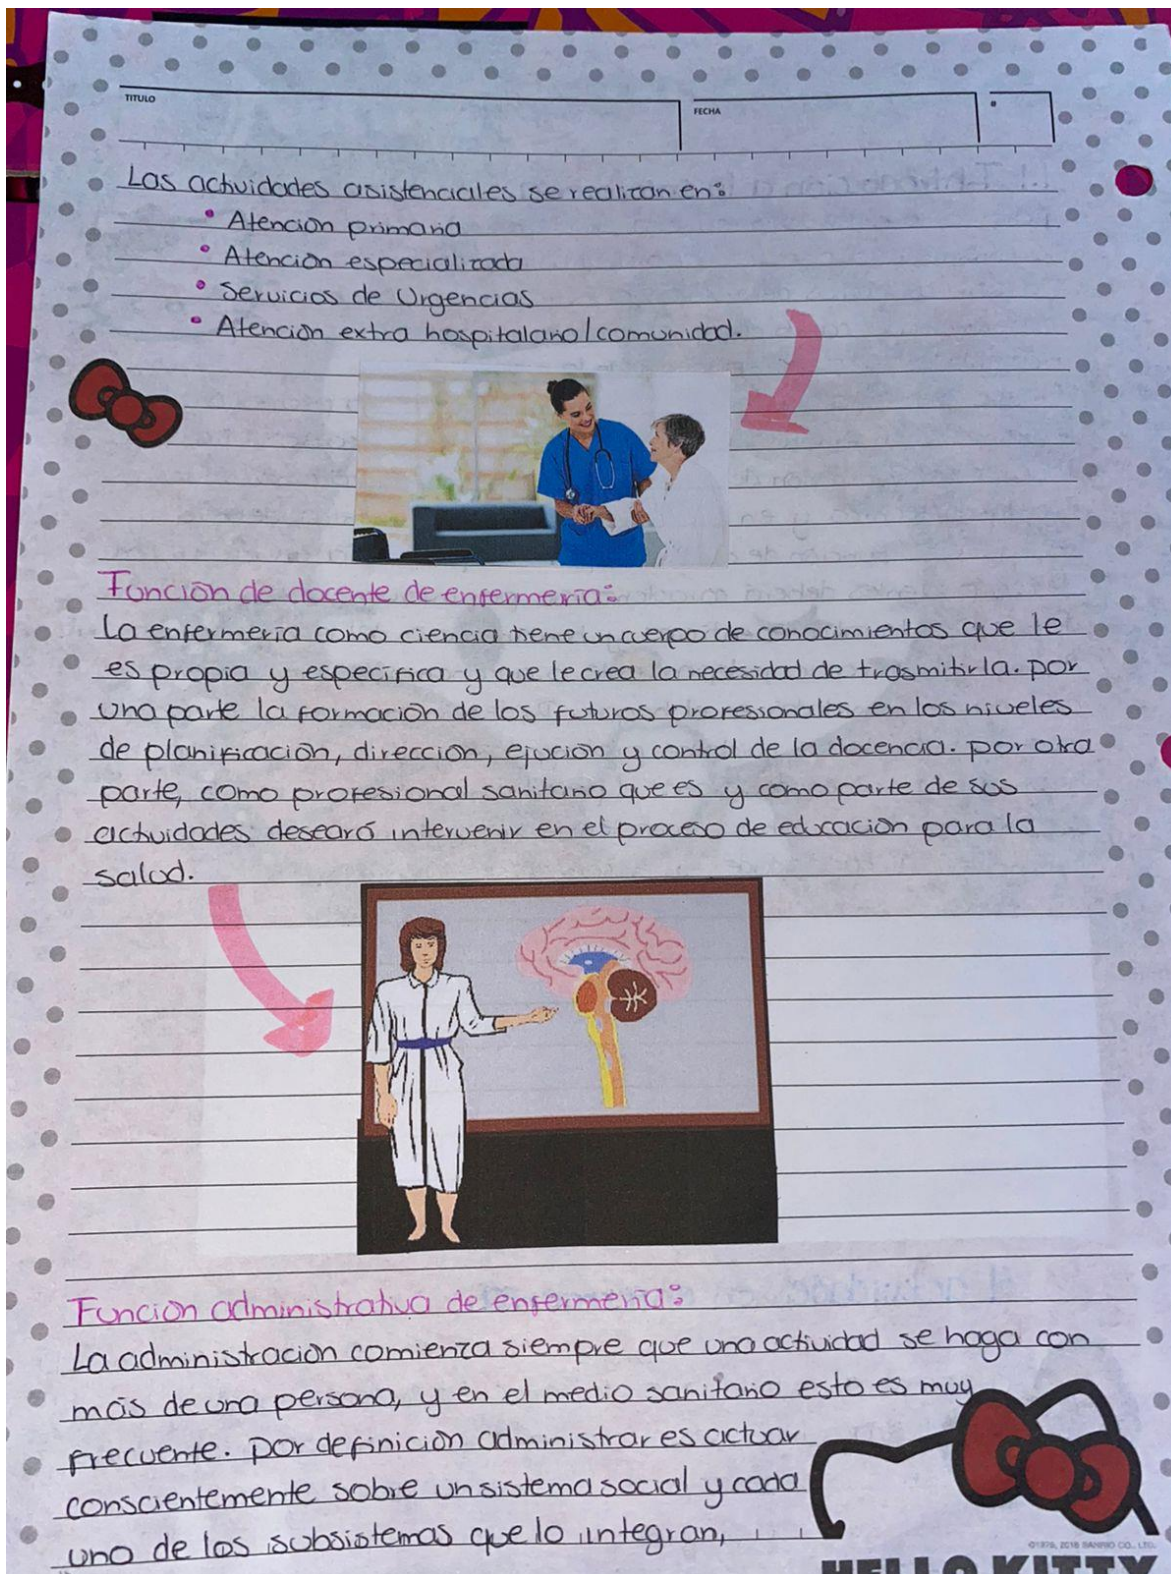 TITULO
FECHA
Las actividades asistenciales se realizan en:
• Atención primaria
• Atención especializada
• Servicios de Urgencias
• Atención extra hospitalario/comunidad.
Función de docente de enfermería:
La enfermería como ciencia tiene un cuerpo de conocimientos que le
es propia y específica y que le crea la necesidad de trasmitirla. por
una parte la formación de los futuros profesionales en los niveles
de planificación, dirección, ejución y control de la docencia. por otra
parte, como profesional sanitario que es y como parte de sus
actividades deseará intervenir en el proceso de educación para la
salud.
Función administrativa de enfermería:
La administración comienza siempre que una actividad se haga con
más de una persona, y en el medio sanitario esto es muy
frecuente. por definición administrar es actuar
conscientemente sobre un sistema social y cada
uno de los subsistemas que lo integran,
©1976, 2016 SANRIO CO., LTD.
HELLO KITTY